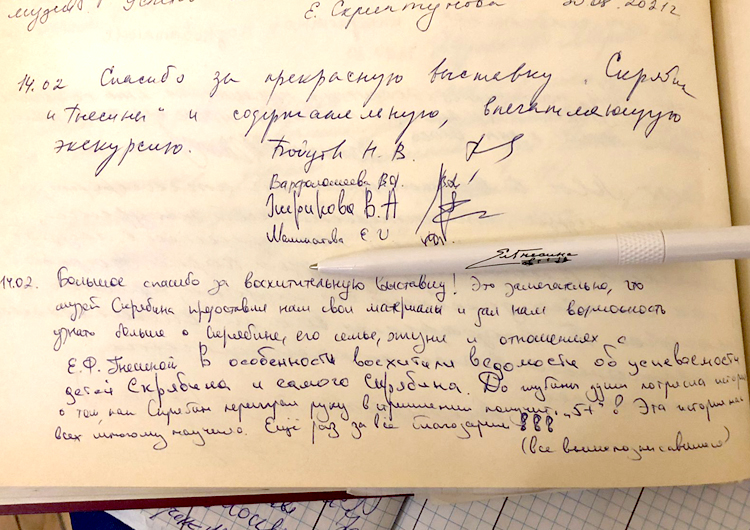 музея
Е. Скриптунова 20.08.2021г
14.02 Спасибо за прекрасную выставку „Скрябин
и Гнесины“ и содержательную, впечатляющую
экскурсию. Н. В.
Варфоломеева
В. А
Е
ЕлГнесина
14.02. Большое спасибо за восхитительную выставку! Это замечательно, что
музей Скрябина предоставил нам свои материалы и дал нам возможность
узнать больше о Скрябине, его семье, жизни и отношениях с
Е.Ф. Гнесиной В особенности восхитили ведомости об успеваемости
детей Скрябина и самого Скрябина. До глубины души потрясла история
о том, как Скрябин переиграл руку в стремлении получить „5+“! Эта история нас
всех многому научила. Ещё раз за всё благодарим !!!
(все вышеподписавшиеся)